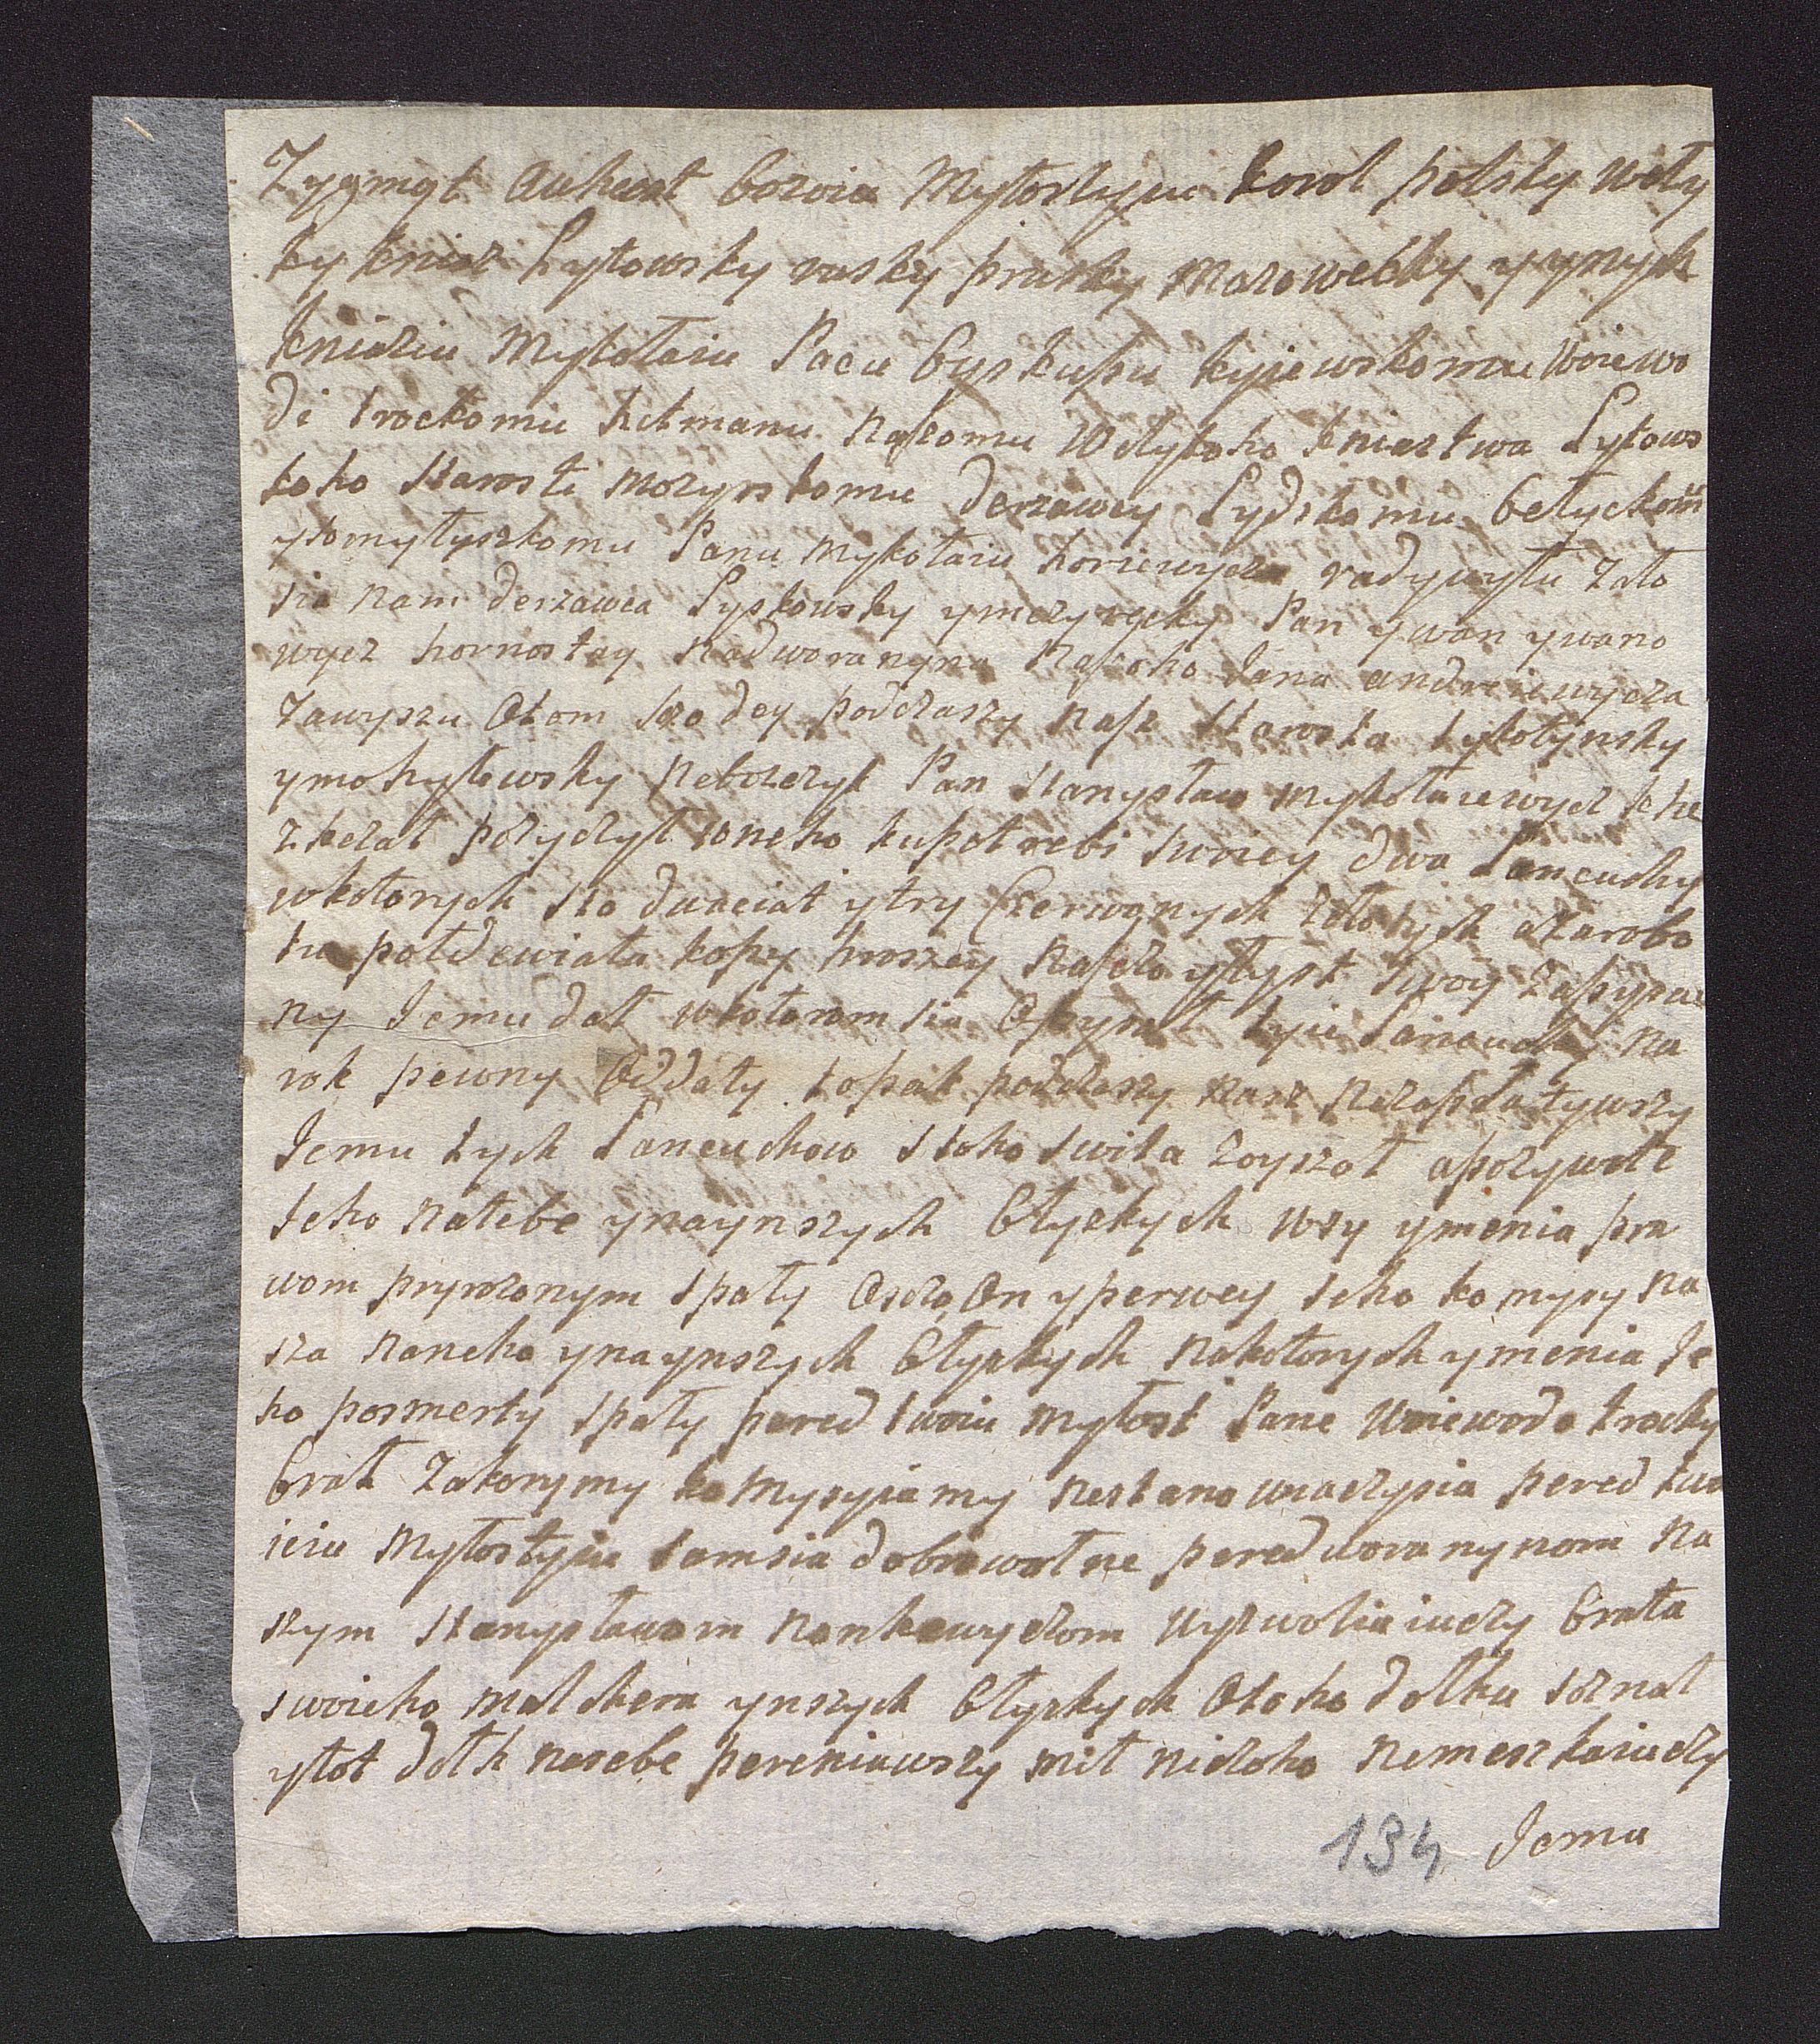 Zygmąt Auhust bozoiu Mytostyiu korol polsky weły
ky kniaz Lytowsky rusky prusky mazowecky y ynych
kniaziu Mykołaiu Pacu byskupu kyiewskomu Woiewo
di trockomu hetmanu naszomu Wełykoho kniaztwa Lytows
koho starosti mozyrskomu derzawcy Lydskomu bełyckom̃
y somyłyszkomu Panu Mykołaiu Ioriewycza radywyłu Zało
sia nam derzawca Lypkowsky y mezyrecky Pan ywan ywano
wycz hornostay na dworanyna naszoho Jana andreiewycza
Zawyszu Otom szo dey podczaszy nasz starosta tykotynsky
y mohylewsky neboszczyk Pan stanysław mykołaiewycz khe
zkhzal pozyczył w neho ku potrebi swoiey dwa Łancuchy
w kotorych sto dwaciat y try Czerwonych złotych a za robo
tu połdewiata kopy hroszey na szczo y łyst swoy zapysa
ny Jemu dał w kotorom sia Opysał tyie Łancuchy na
rok pewny Oddaty to pak podczaszy nasz ne zapłatywszy
Jemu tych Łancuchow s toho swita zoyszoł a po zywoti
Jeho na tebe y na ynszych blyzkych wsy ymenia pra
wom pryrozonym spały Oszczo On y perwey seho komysy na
sza na neho y na ynszych blyzkych na kotorych ymenia Je
ho po smerty spały pered twoiu mytost Pane Woiewodo trocky
brał za kotorymy komysyiamy ne stanowiaczysia pered two
ieiu Mytostyiu sam sia dobrowolne pered dworanynom na
szym stanysławom nonkowyczom wyzwoliaiuczy brata
swoieho malchera ynszych blyzkych Ot toho dołhu sznał
y tot dołh na sebe pereniawszy mił niczoho ne meszkaiuczy
134 Jemu